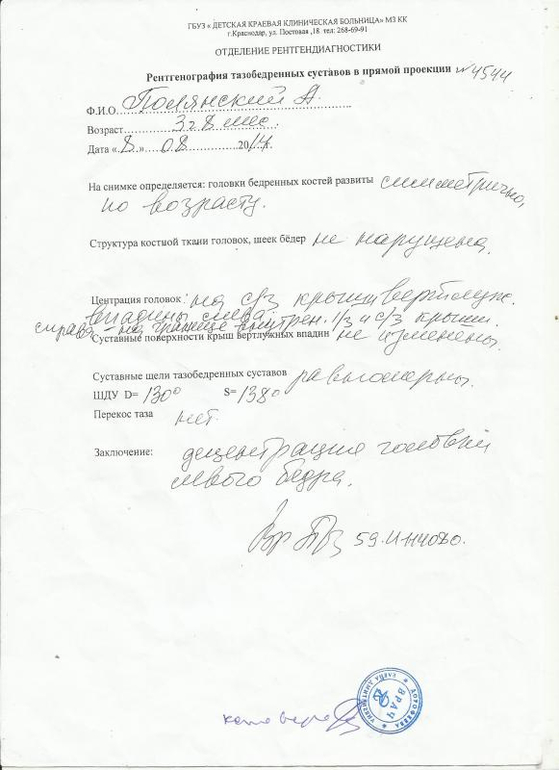 ГБУЗ « ДЕТСКАЯ КРАЕВАЯ КЛИНИЧЕСКАЯ БОЛЬНИЦА» МЗ КК
г.Краснодар, ул. Постовая ,18 тел: 268-69-91
ОТДЕЛЕНИЕ РЕНТГЕНДИАГНОСТИКИ
Рентгенография тазобедренных суставов в прямой проекции №4544
Ф.И.О. Полянский А.
Возраст 3г 8 мес.
Дата «8» 08 2014.
На снимке определяется: головки бедренных костей развиты симметрично,
по возрасту.
Структура костной ткани головок, шеек бёдер не нарушена.
Центрация головок: на с/з крыши вертлужн.
впадины слева.
справа - на границе внутрен. 1/3 и с/з крыши.
Суставные поверхности крыш вертлужных впадин не изменены.
Суставные щели тазобедренных суставов равномерны.
ШДУ D= 130° S= 138°
Перекос таза нет.
Заключение: децентрация головки
левого бедра.
Вр
ВРАЧ